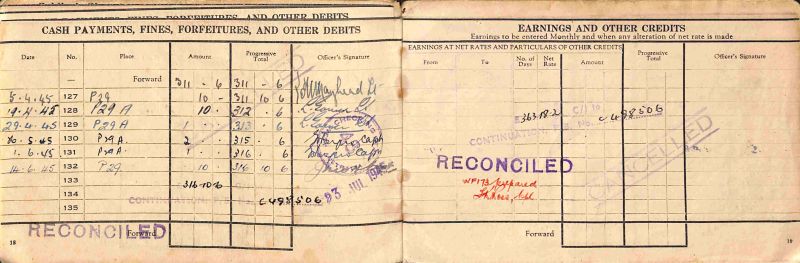 CASH PAYMENTS, FINES, FORFEITURES, AND OTHER DEBITS
Date No. Place Amount Progressive Total Officer's Signature
Forward 311 - 6 311 - 6
5.4.45 127 P29 10 - 311 10 6
19.4.45 128 P29 A 10 - 312 - 6
29.4.45 129 P29 A 1 - 313 - 6
130 P29A 2 315 - 6
1.6.45 131 P29A 1 316 - 6
14.6.45 132 P29 10 316 10 6
133
134 316-10-6
135 C498506
RECONCILED
Forward
18
EARNINGS AND OTHER CREDITS
Earnings to be entered Monthly and when any alteration of net rate is made
EARNINGS AT NET RATES AND PARTICULARS OF OTHER CREDITS
From To No. of Days Net Rate Amount Progressive Total Officer's Signature
Forward
363-18-2 C498506
CONTINUATION
CANCELLED
RECONCILED
WF173 prepared
Forward
19